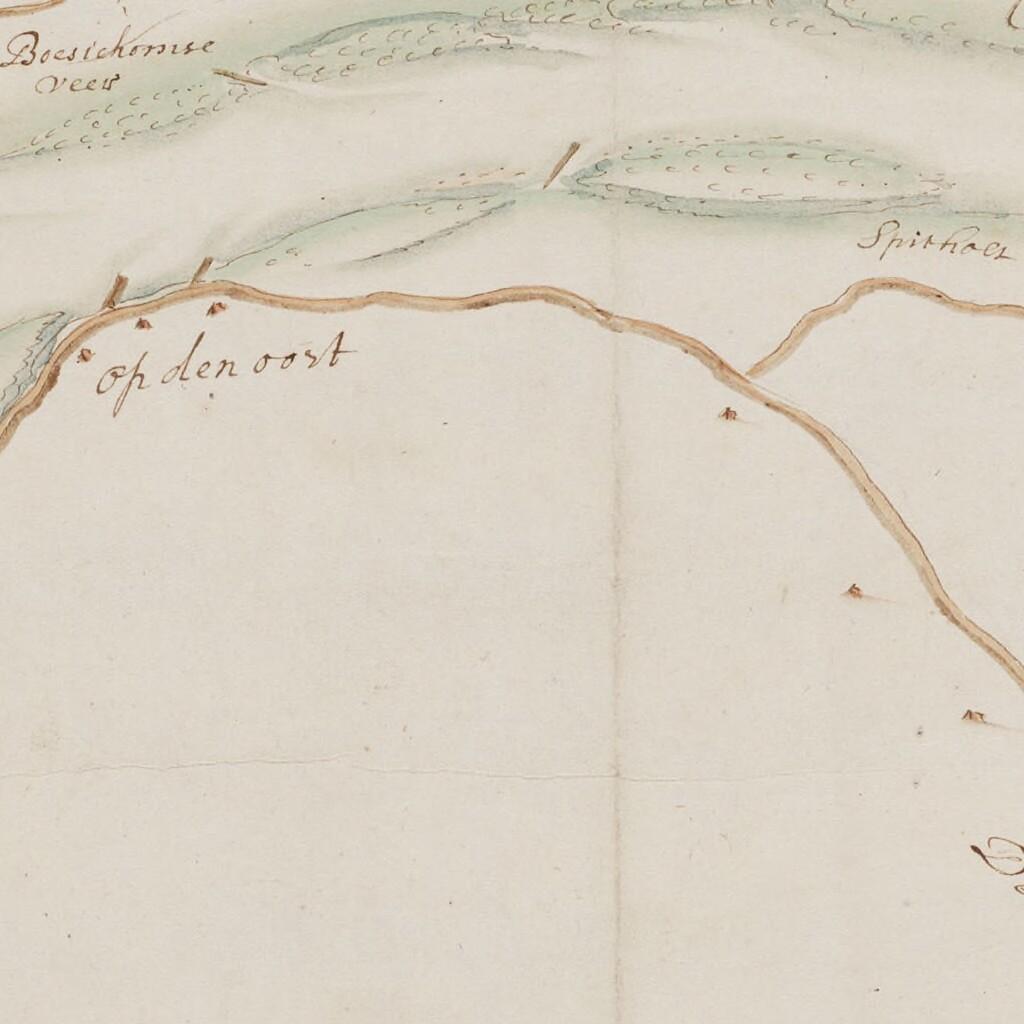 Boesichomse
Veer
Spithoet
op den oort